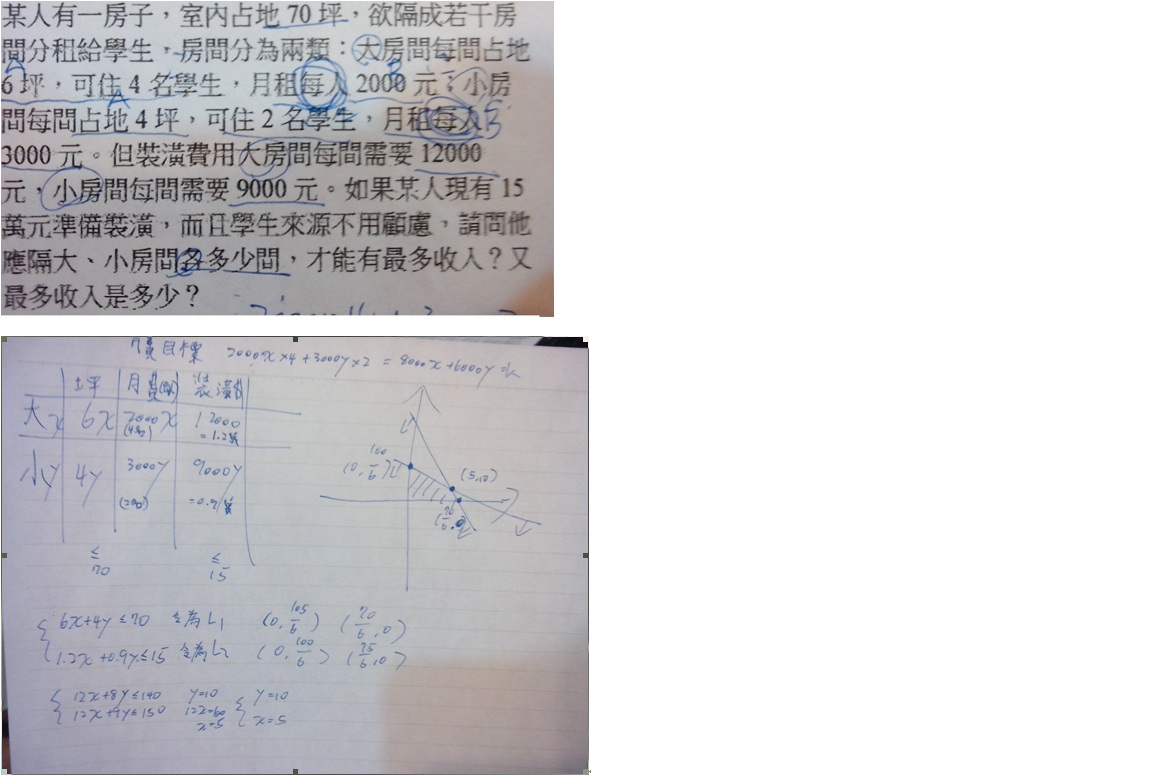 某人有一房子，室內占地 70 坪，欲隔成若干房
間分租給學生，房間分為兩類：大房間每間占地
6 坪，可住 4 名學生，月租每人 2000 元；小房
間每間占地 4 坪，可住 2 名學生，月租每人
3000 元。但裝潢費用大房間每間需要 12000
元，小房間每間需要 9000 元。如果某人現有 15
萬元準備裝潢，而且學生來源不用顧慮，請問他
應隔大、小房間各多少間，才能有最多收入？又
最多收入是多少？
A B
A B
目標 2000x×4+3000y×2 = 8000x+6000y
坪 月費 裝潢
大x 6x 2000x 12000
=1.2萬
小y 4y 3000y 9000y
=0.9萬
≤ ≤
70 15
(0, 100/6) (5,10)
(70/6, 0)
6x+4y≤70 令為L1 (0, 105/6) (70/6, 0)
1.2x+0.9y≤15 令為L2 (0, 100/6) (75/6, 0)
12x+8y≤140 y=10 y=10
12x+9y≤150 12x=60 x=5
x=5